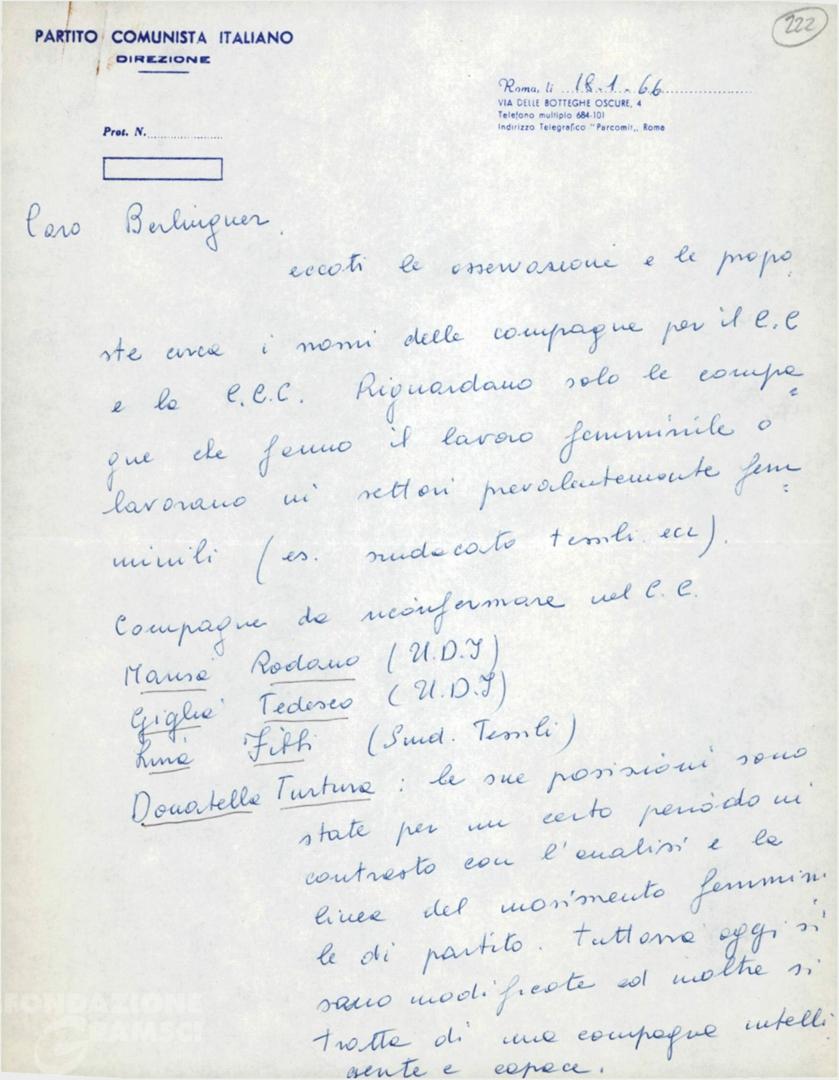 222
PARTITO COMUNISTA ITALIANO
DIREZIONE
Roma, li 18.1.66
VIA DELLE BOTTEGHE OSCURE, 4
Telefono multiplo 684-101
Indirizzo Telegrafico "Parcomit„ Roma
Prot. N.
Caro Berlinguer,
eccoti le osservazioni e le propo
ste circa i nomi delle compagne per il C.C
e la C.C.C. Riguardano solo le compa=
gne che fanno il lavoro femminile o
lavorano in settori prevalentemente fem=
minili (es. sindacato tessili ecc).
Compagne da riconfermare nel C.C.
Marisa Rodano (U.D.I)
Giglia Tedesco (U.D.I)
Lina Fibbi (Sind. Tessili)
Donatella Turtura : le sue posizioni sono
state per un certo periodo in
contrasto con l'analisi e la
linea del movimento femmini
le di partito. Tuttavia oggi si
sono modificate ed inoltre si
tratta di una compagna intelli
gente e capace.
FONDAZIONE
GRAMSCI